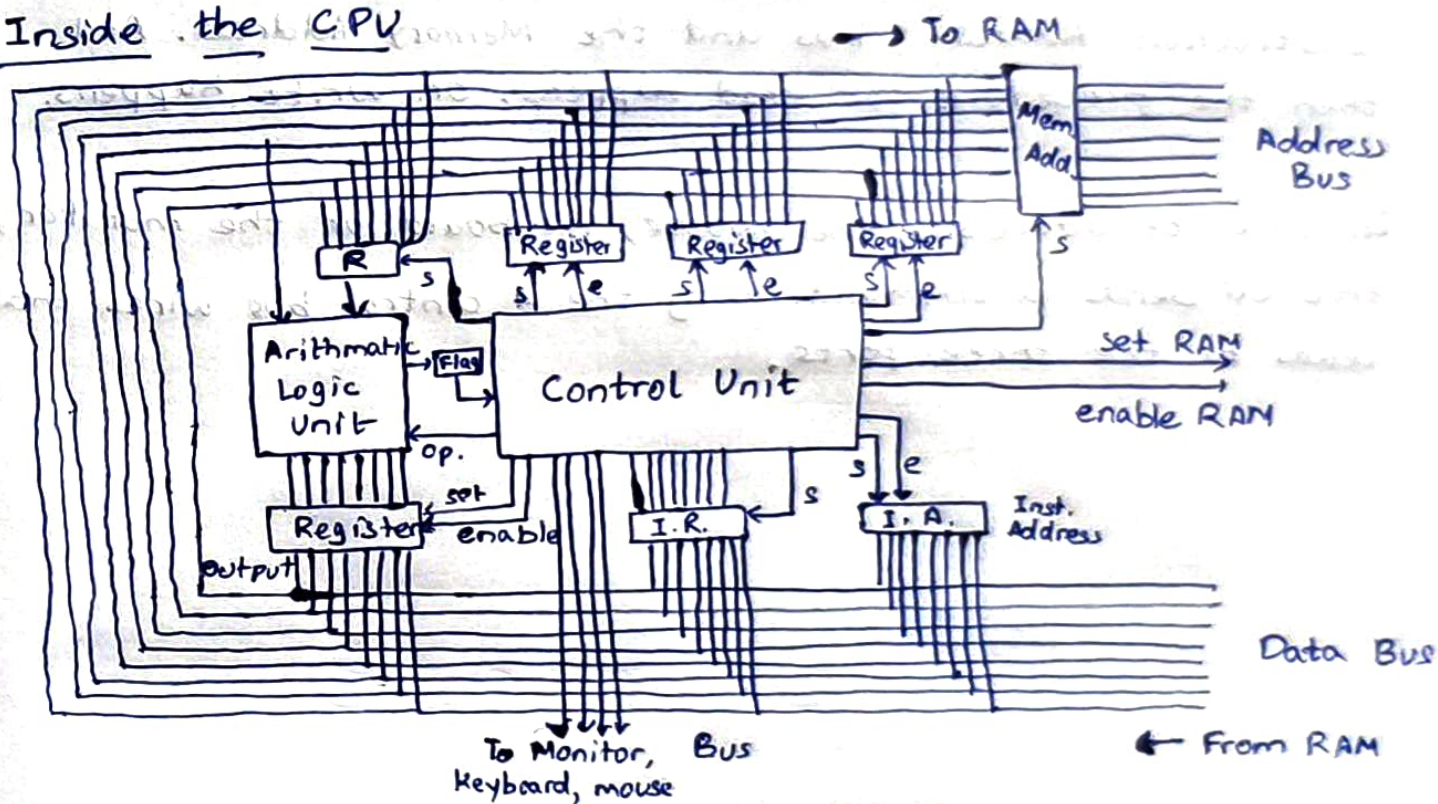 Inside the CPU
→ To RAM
Mem.
Add.
Address
Bus
R
s
Register
s
e
Register
s
e
Register
s
e
s
Arithmatic
Logic
Unit
Flag
Control Unit
set RAM
enable RAM
op.
set
enable
Register
output
I.R.
s
s
e
I.A.
Inst.
Address
Data Bus
To Monitor, Bus
Keyboard, mouse
← From RAM